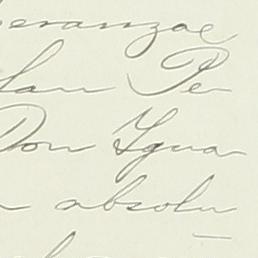 peranzae
lan Pe
Don Ygna
absolu